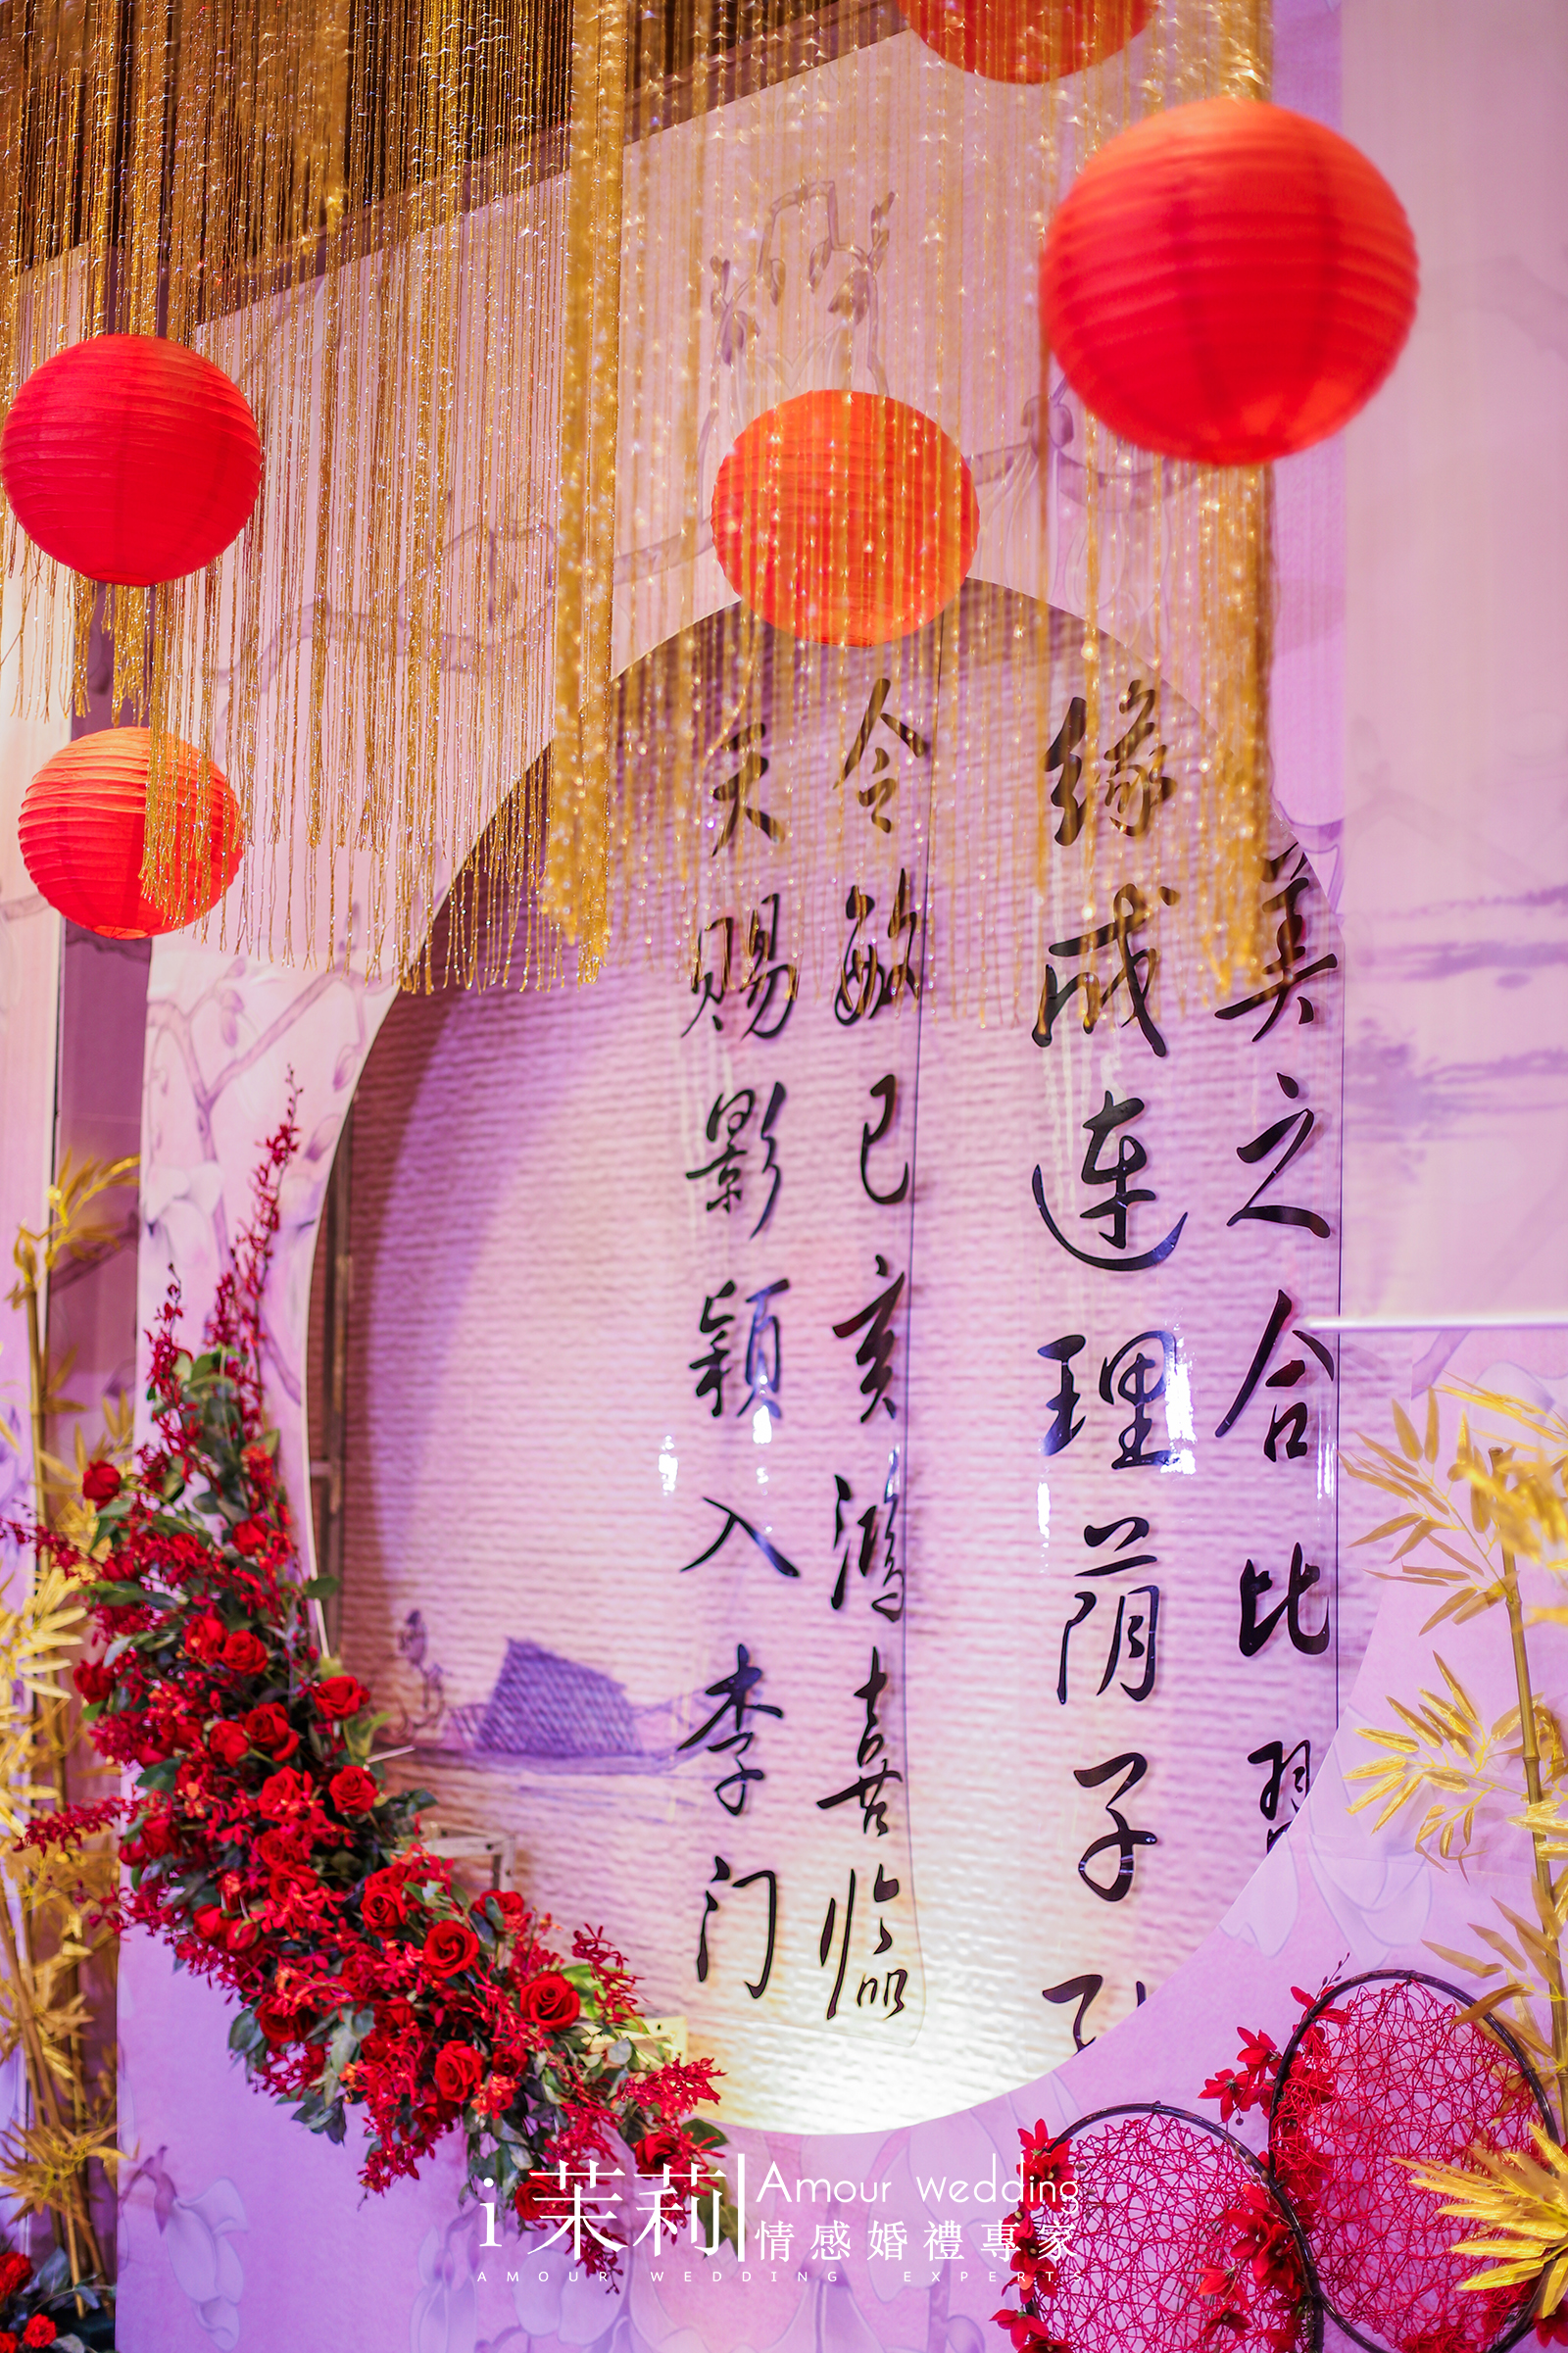 美之合比翼
缘成连理荫子孙
令敏已亥鸿喜临
天赐影颖入李门
i茉莉
Amour wedding
情感婚禮專家
AMOUR WEDDING EXPERTS